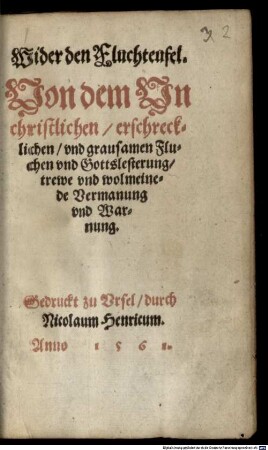 32
Wider den Fluchteufel.
Von dem Vn
christlichen / erschreck-
lichen / vnd grausamen Flu-
chen vnd Gottslesterung /
trewe vnd wolmeine-
de Vermanung
vnd War-
nung.
Gedruckt zu Vrsel / durch
Nicolaum Henricum.
Anno 1561.